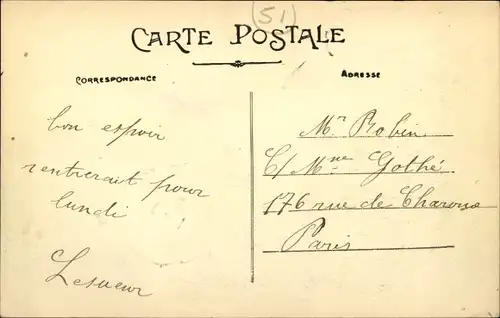 (51)
CARTE POSTALE
CORRESPONDANCE
ADRESSE
bon espoir
rentrerait pour
lundi
Lesueur
Mr Robin
C/ Mme Gothé
176 rue de Charonne
Paris